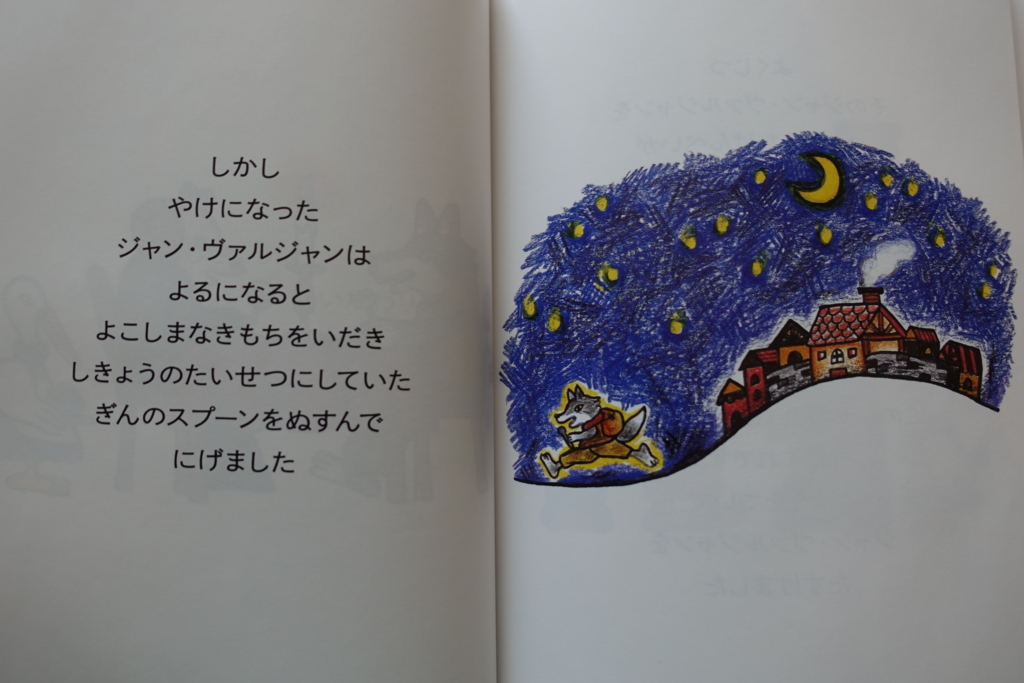 しかし
やけになった
ジャン・ヴァルジャンは
よるになると
よこしまなきもちをいだき
しきょうのたいせつにしていた
ぎんのスプーンをぬすんで
にげました